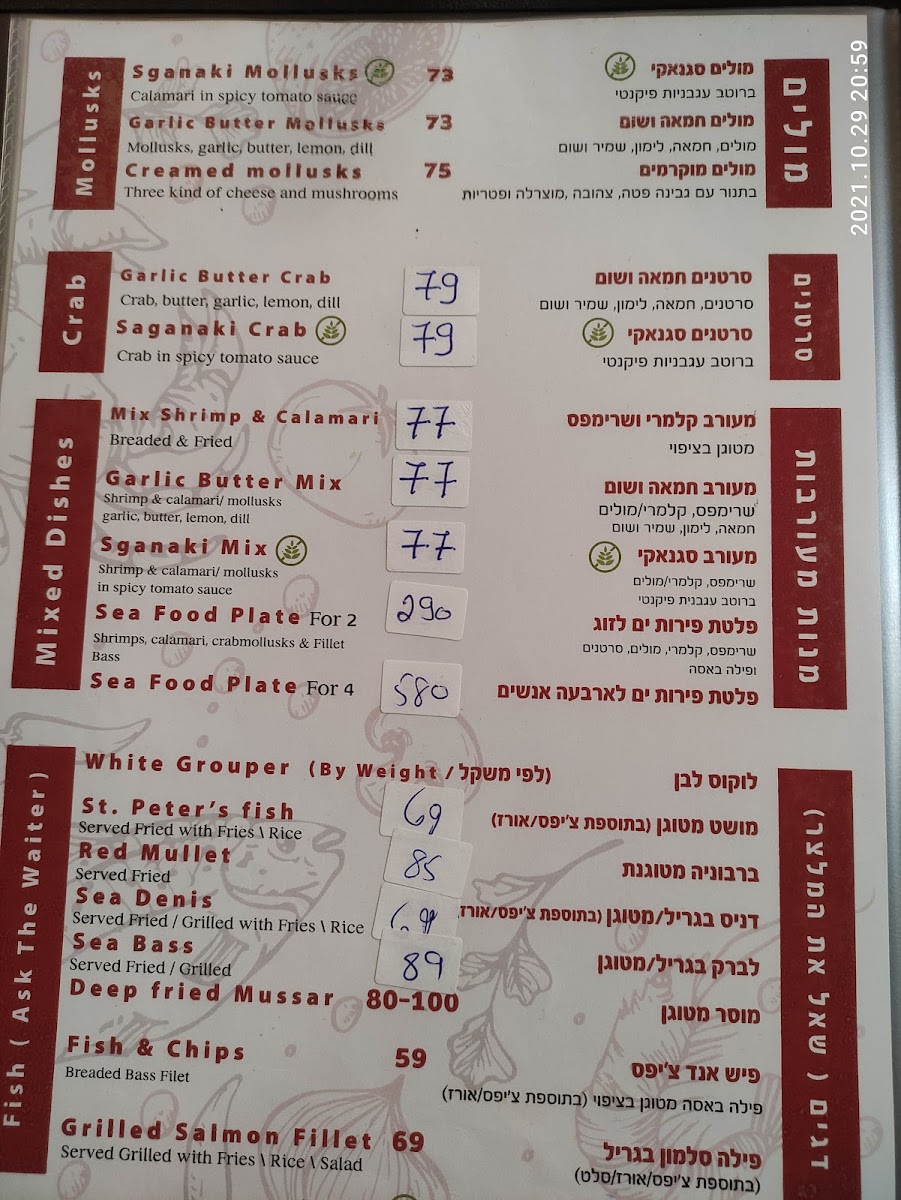 2021.10.29 20:59
Mollusks
מולים
Sganaki Mollusks 73 מולים סגנאקי
Calamari in spicy tomato sauce ברוטב עגבניות פיקנטי
Garlic Butter Mollusks 73 מולים חמאה ושום
Mollusks, garlic, butter, lemon, dill מולים, חמאה, לימון, שמיר ושום
Creamed mollusks 75 מולים מוקרמים
Three kind of cheese and mushrooms בתנור עם גבינה פטה, צהובה ,מוצרלה ופטריות
Crab
סרטנים
Garlic Butter Crab 79 סרטנים חמאה ושום
Crab, butter, garlic, lemon, dill סרטנים, חמאה, לימון, שמיר ושום
Saganaki Crab 79 סרטנים סגנאקי
Crab in spicy tomato sauce ברוטב עגבניות פיקנטי
Mixed Dishes
מנות מעורבות
Mix Shrimp & Calamari 77 מעורב קלמרי ושרימפס
Breaded & Fried מטוגן בציפוי
Garlic Butter Mix 77 מעורב חמאה ושום
Shrimp & calamari/ mollusks שרימפס, קלמרי/מולים
garlic, butter, lemon, dill חמאה, לימון, שמיר ושום
Sganaki Mix 77 מעורב סגנאקי
Shrimp & calamari/ mollusks שרימפס, קלמרי/מולים
in spicy tomato sauce ברוטב עגבנית פיקנטי
Sea Food Plate For 2 290 פלטת פירות ים לזוג
Shrimps, calamari, crabmollusks & Fillet שרימפס, קלמרי, מולים, סרטנים
Bass ופילה באסה
Sea Food Plate For 4 580 פלטת פירות ים לארבעה אנשים
Fish ( Ask The Waiter )
דגים ( שאל את המלצר)
White Grouper (By Weight / לפי משקל) לוקוס לבן
St. Peter's fish 69 מושט מטוגן (בתוספת צ'יפס/אורז)
Served Fried with Fries \ Rice
Red Mullet 85 ברבוניה מטוגנת
Served Fried
Sea Denis 69 דניס בגריל/מטוגן (בתוספת צ'יפס/אורז
Served Fried / Grilled with Fries \ Rice
Sea Bass 89 לברק בגריל/מטוגן
Served Fried / Grilled
Deep fried Mussar 80-100 מוסר מטוגן
Fish & Chips 59 פיש אנד צ'יפס
Breaded Bass Filet פילה באסה מטוגן בציפוי (בתוספת צ'יפס/אורז)
Grilled Salmon Fillet 69 פילה סלמון בגריל
Served Grilled with Fries \ Rice \ Salad (בתוספת צ'יפס/אורז/סלט)